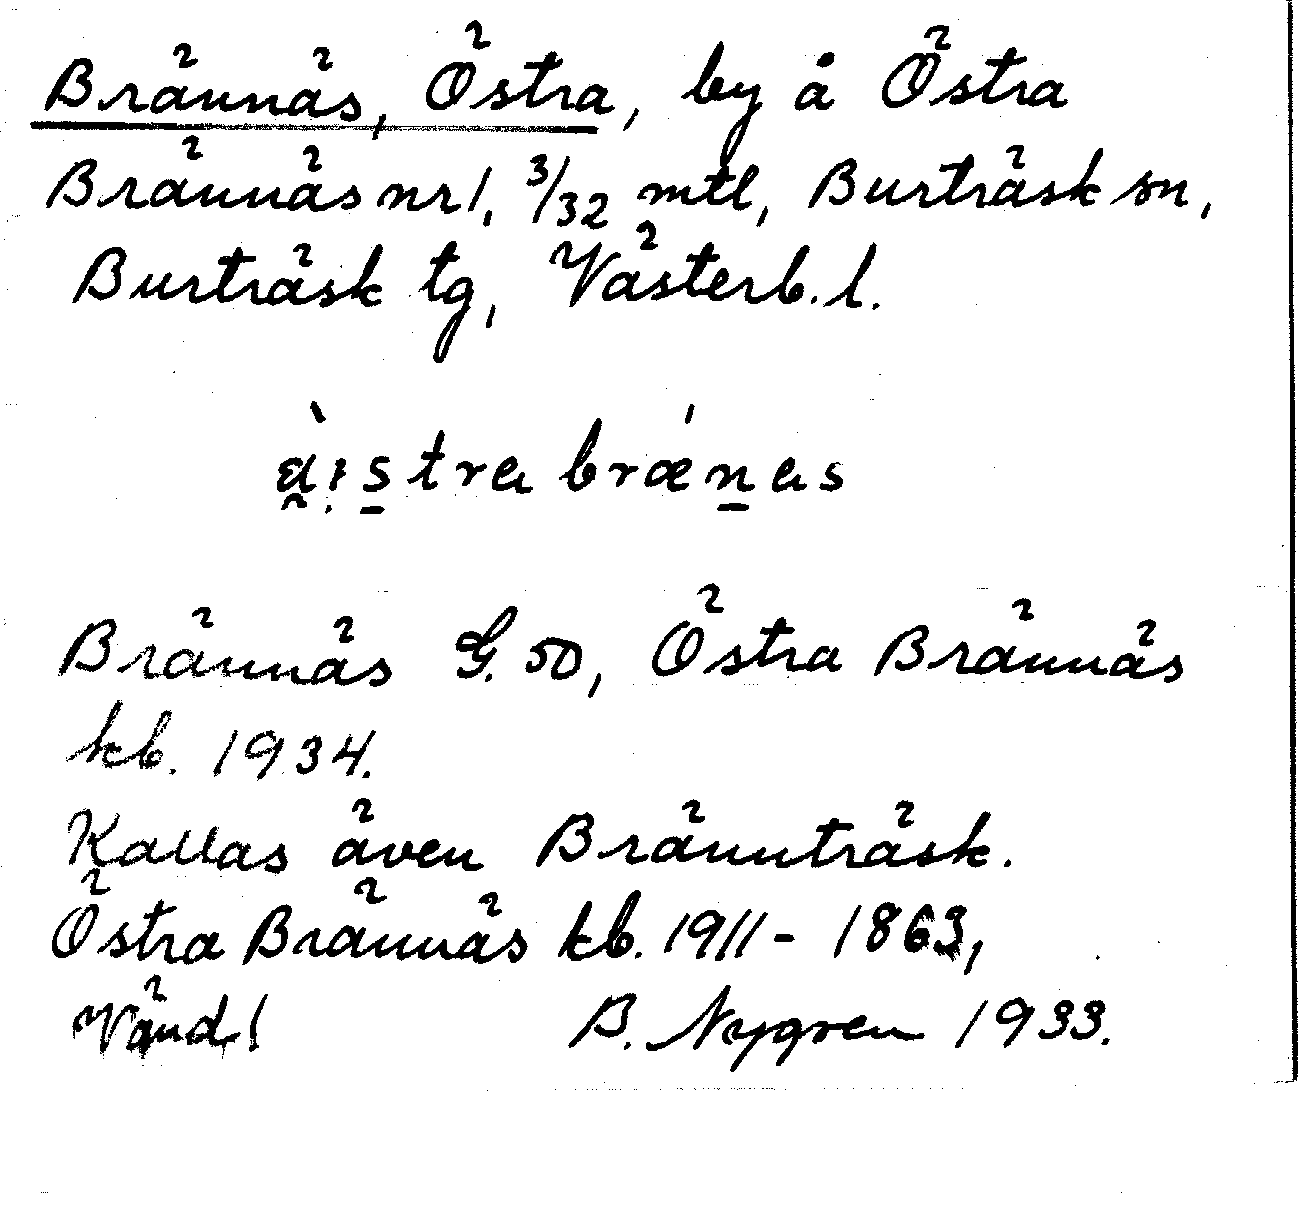 Brännäs, Östra, by å Östra
Brännäs nr 1, 3/32 mtl, Burträsk sn,
Burträsk tg, Västerb. l.
Brännäs G. 50, Östra Brännäs
kb. 1934.
Kallas även Brännträsk.
Östra Brännäs kb. 1911 - 1863,
Vänd!
B. Nygren 1933.